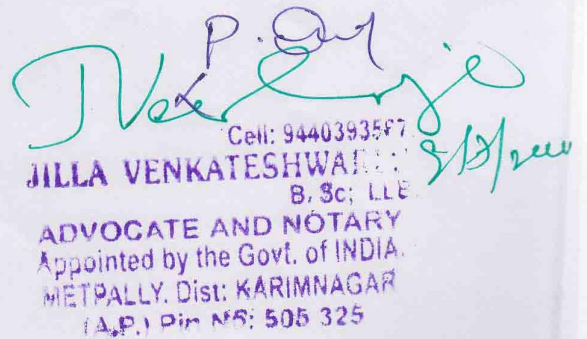 Cell: 9440393587
JILLA VENKATESHWA
B. Sc; LLB
ADVOCATE AND NOTARY
Appointed by the Govt. of INDIA.
METPALLY. Dist: KARIMNAGAR
(A.P.) Pin No: 505 325